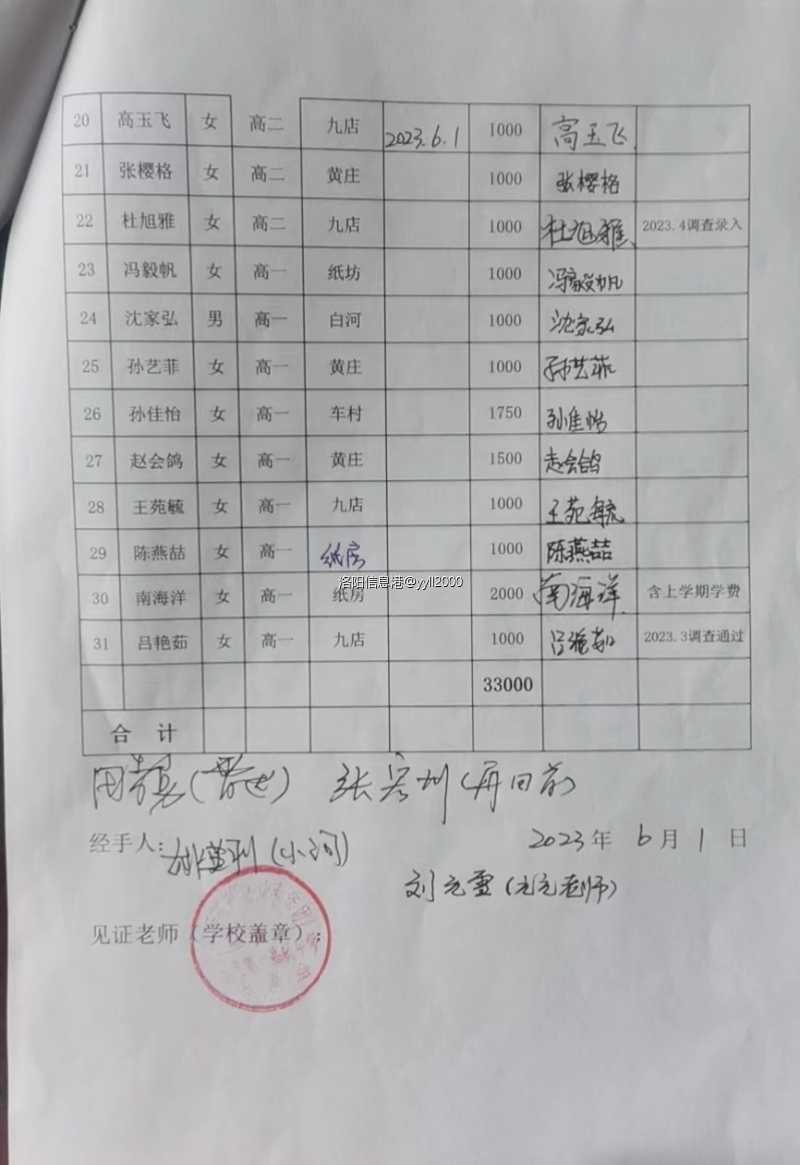 20 高玉飞 女 高二 九店 2023.6.1 1000 高玉飞
21 张樱格 女 高二 黄庄 1000 张樱格
22 杜旭雅 女 高二 九店 1000 杜旭雅 2023.4调查录入
23 冯毅帆 女 高一 纸坊 1000 冯毅帆
24 沈家弘 男 高一 白河 1000 沈家弘
25 孙艺菲 女 高一 黄庄 1000 孙艺菲
26 孙佳怡 女 高一 车村 1750 孙佳怡
27 赵会鸽 女 高一 黄庄 1500 赵会鸽
28 王苑毓 女 高一 九店 1000 王苑毓
29 陈燕喆 女 高一 纸房 1000 陈燕喆
洛阳信息港@yyll2000
30 南海洋 女 高一 纸房 2000 南海洋 含上学期学费
31 吕艳茹 女 高一 九店 1000 吕艳茹 2023.3调查通过
33000
合计
经手人: (小河) 2023年 6月 1日
刘元雪(元元老师)
见证老师(学校盖章):